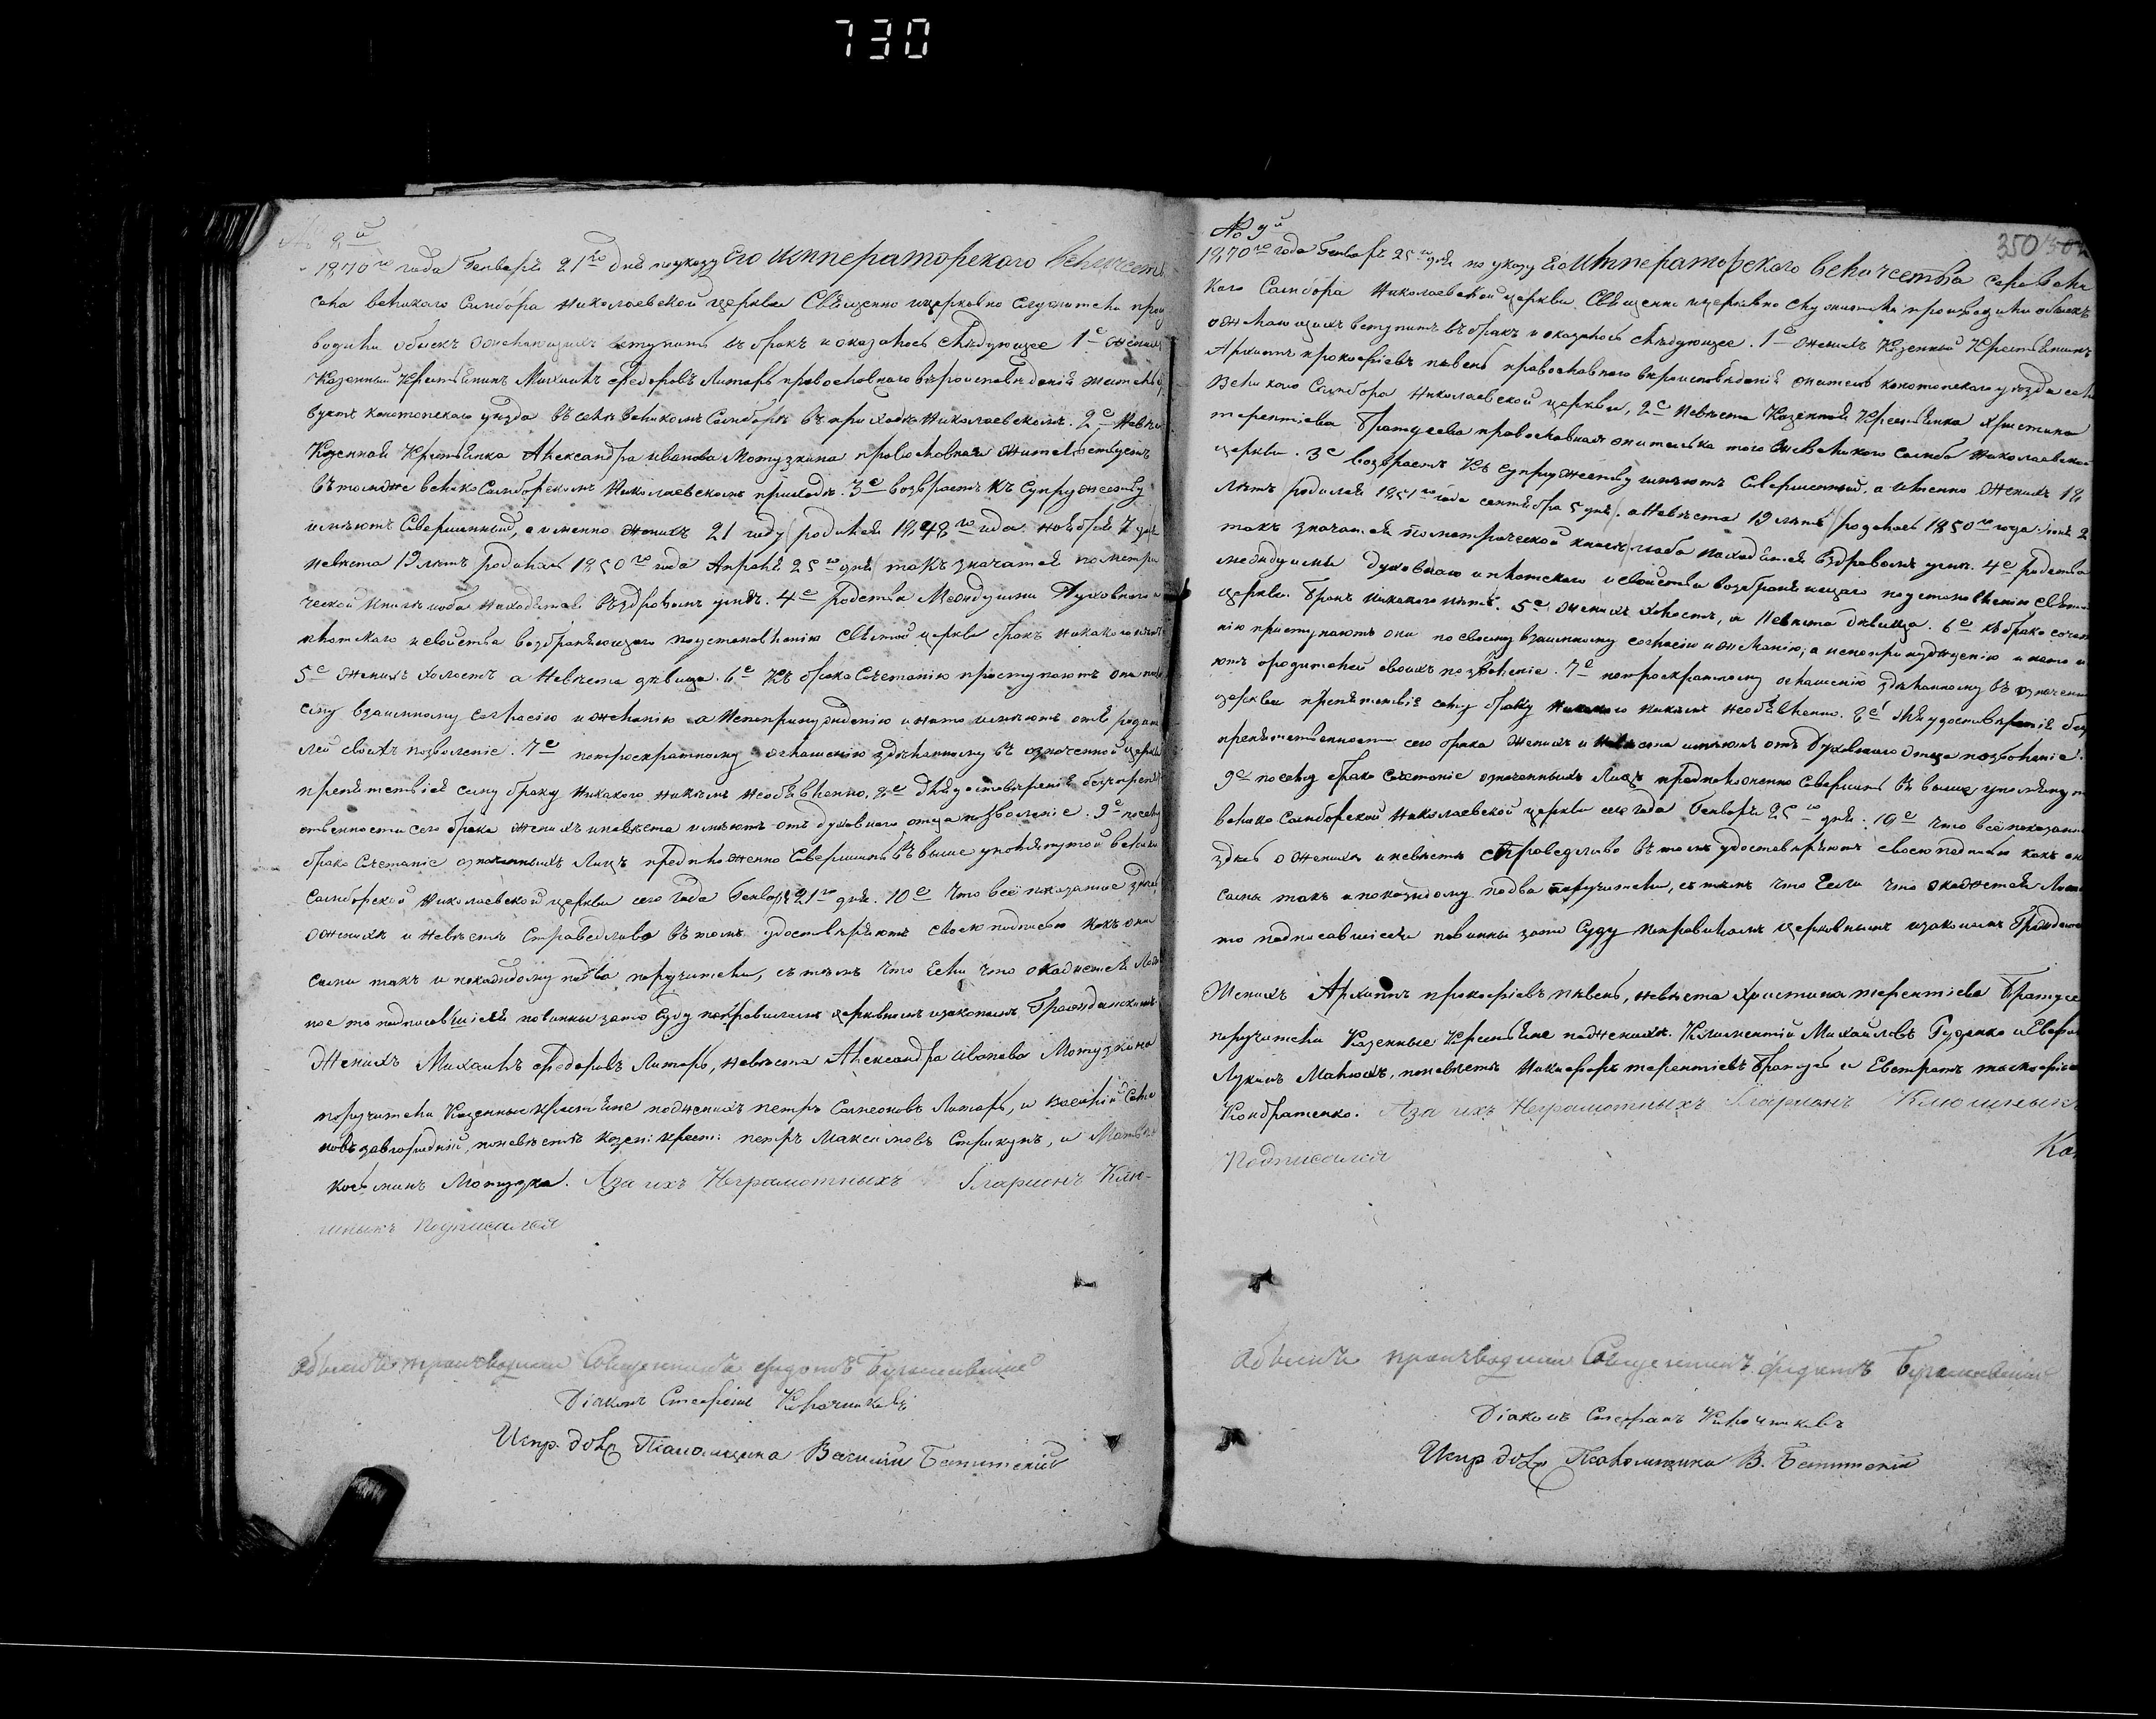 730
№ 8й
1870го года Генваря 21го дня по указу Его Императорского величеств
села великого Самбора Николаевской церкви Священно и церковно служители прои
водили обыскъ о желающихъ вступить въ бракъ и оказалось следующее 1е Женихъ
Казенный Крестьянинъ Михаилъ Федоровъ Литарь православнаго вероисповеданія жительс
вуетъ конотопскаго уезда въ селе великомъ Самборе въ приходе Николаевскомъ. 2е Невес
Казенная Крестьянка Александра иванова Мотузкина православная жительствуетъ
въ томъ же велико Самборскомъ Николаевскомъ приходе. 3е возврастъ къ Супружеству
имеютъ Совершенный, а именно Женихъ 21 году /родился 1848го года ноября 7 дня
невеста 19 летъ родилась 1850го года Апреля 25го дня/ такъ значатся по метри
ческой книге оба находятся въ здравомъ уме. 4е родства Между ими Духовного и
плотского и свойства возбраняющаго по установленію святой церкви бракъ никакого нетъ
5е Женихъ холостъ а Невеста девица. 6е Къ брако Сочетанію приступаютъ они по сво
ему взаимному согласію и желанію а не по принужденію и на то имеютъ отъ родите
лей своихъ позволеніе. 7е по троекратному оглашенію зделанному въ означенной церкве
препятствія сему браку никакого никемъ необъявленно, 8е Для удостоверенія безпрепят
ственности сего брака Женихъ и невеста имеютъ отъ духовного отца позволеніе. 9е посему
брако Сочетаніе означенныхъ Лицъ предположенно Совершить въ выше упомянутой велико
Самборской Николаевской церкви сего года Генваря 21го дня. 10е что всё показанное здесь
о Женихе и невесте Справедливо въ томъ удостоверяютъ своею подписью какъ они
сами такъ и по каждому по два поручители, съ темъ что Если что окажется Лож
ное то подписавшіеся повинны за то Суду по правиламъ церковнымъ и законамъ Гражданскимъ
Женихъ Михаилъ Федоровъ Литарь, невеста Александра иванова Мотузкина
поручители Казенные крестьяне по женихе петръ Самсоновъ Литарь, и Василій Семе
новъ завгородній, по невесте казен: крест: петръ Максимовъ Стрикунъ, и Матвей
Косминъ Мотузка. А за ихъ Неграмотныхъ Іларионъ Клю-
шныкъ подписался
Обыскъ производили Священникъ Федотъ
Діаконъ Стефанъ Кирочниковъ
Испр. дол. Псаломщика Василий
350
№ 9й
1870го года Генваря 25го дня по указу Его Императорского величества села Вели
кого Самбора Николаевской церкви Священно и церковно служители производили обыскъ
о желающихъ вступить въ бракъ и оказалось следующее. 1е Женихъ Казенный Крестьянинъ
Архипъ прокофіевъ певень православного вероисповеданія житель конотопскаго уезда села
Великого Самбора Николаевской церкви, 2е Невеста Казенная Крестьянка Христина
терентіева Братусева православная жителька того же Великого Самбора Николаевской
церкви. 3е возврастъ Къ Супружеству имеютъ Совершенный, а именно Женихъ 18
летъ родился 1851го года сентября 5 дня/. а Невеста 19 летъ /родилась 1850го года
такъ значатся по метрической книге/ оба находятся въ здравомъ уме. 4е родства
между ими духовнаго и плотского и свойства возбраняющаго по установленію святой
церкви. бракъ никакого нетъ. 5е Женихъ холостъ, а Невеста девица. 6е къ брако сочета
нію приступаютъ они по своему взаимному согласію и желанію, а не по принужденію и на то и
ютъ отъ родителей своихъ позволеніе. 7е по троекратному оглашенію зделанному въ означенной
церкви препятствія сему браку никакого никемъ необъявленно. 8е Для удостоверенія без
препятственности сего брака Женихъ и невеста имеютъ отъ Духовного отца позволеніе.
9е по сему брако Сочетаніе означенныхъ Лицъ предположенно Совершить въ выше упомянутой
велико Самборской Николаевской церкви сего года Генваря 25го дня. 10е что всё показанное
здесь о Женихе и невесте Справедливо въ томъ удостоверяютъ своею подписью какъ они
сами такъ и по каждому по два поручители, съ темъ что Если что окажется Лож
то подписавшіеся повинны за то Суду по правиламъ церковнымъ и законамъ Гражданс
Женихъ Архипъ прокофіевъ певень, невеста Христина терентіева Братусе
поручители Казенные Крестьяне по женихе. Климентій Михайловъ Гузенко и
Лукинъ Малюкъ, по невесте Никифоръ терентіевъ Братусь и Евстратъ
Кондратенко. А за ихъ Неграмотныхъ Іларионъ Клюшныкъ
Подписался
Обыскъ производили Священникъ Федотъ
Діаконъ Стефанъ Кирочниковъ
Испр. дол. Псаломщика В.